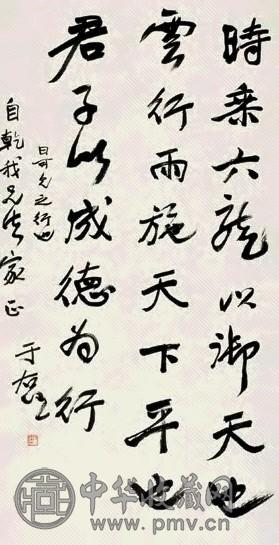 時乘六龍以御天也
雲行雨施天下平也
君子以成德為行
日可見之行也
自乾我兄法家正
于右任
中华收藏网
www.pmv.cn